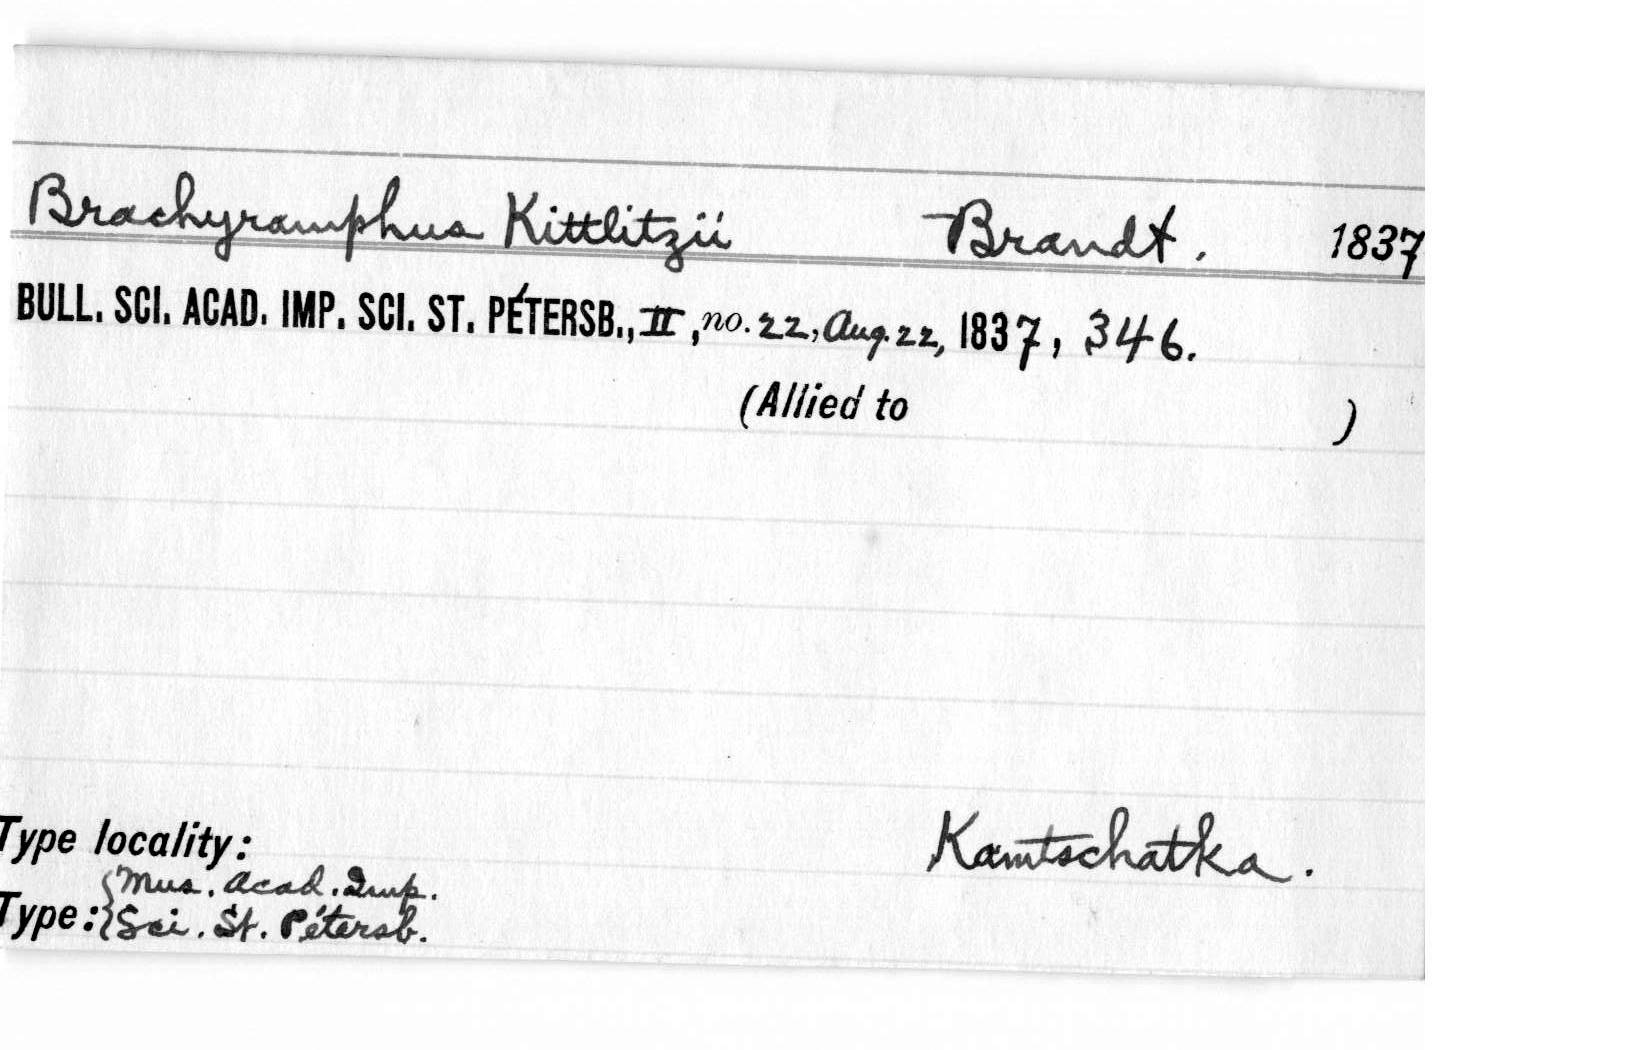 Brachyramphus Kittlitzii Brandt. 1837
BULL. SCI. ACAD. IMP. SCI. ST. PÉTERSB., II, no. 22, Aug. 22, 1837, 346.
(Allied to )
Type locality: Kamtschatka.
Type: {Mus. Acad. Imp.
Sci. St. Pétersb.